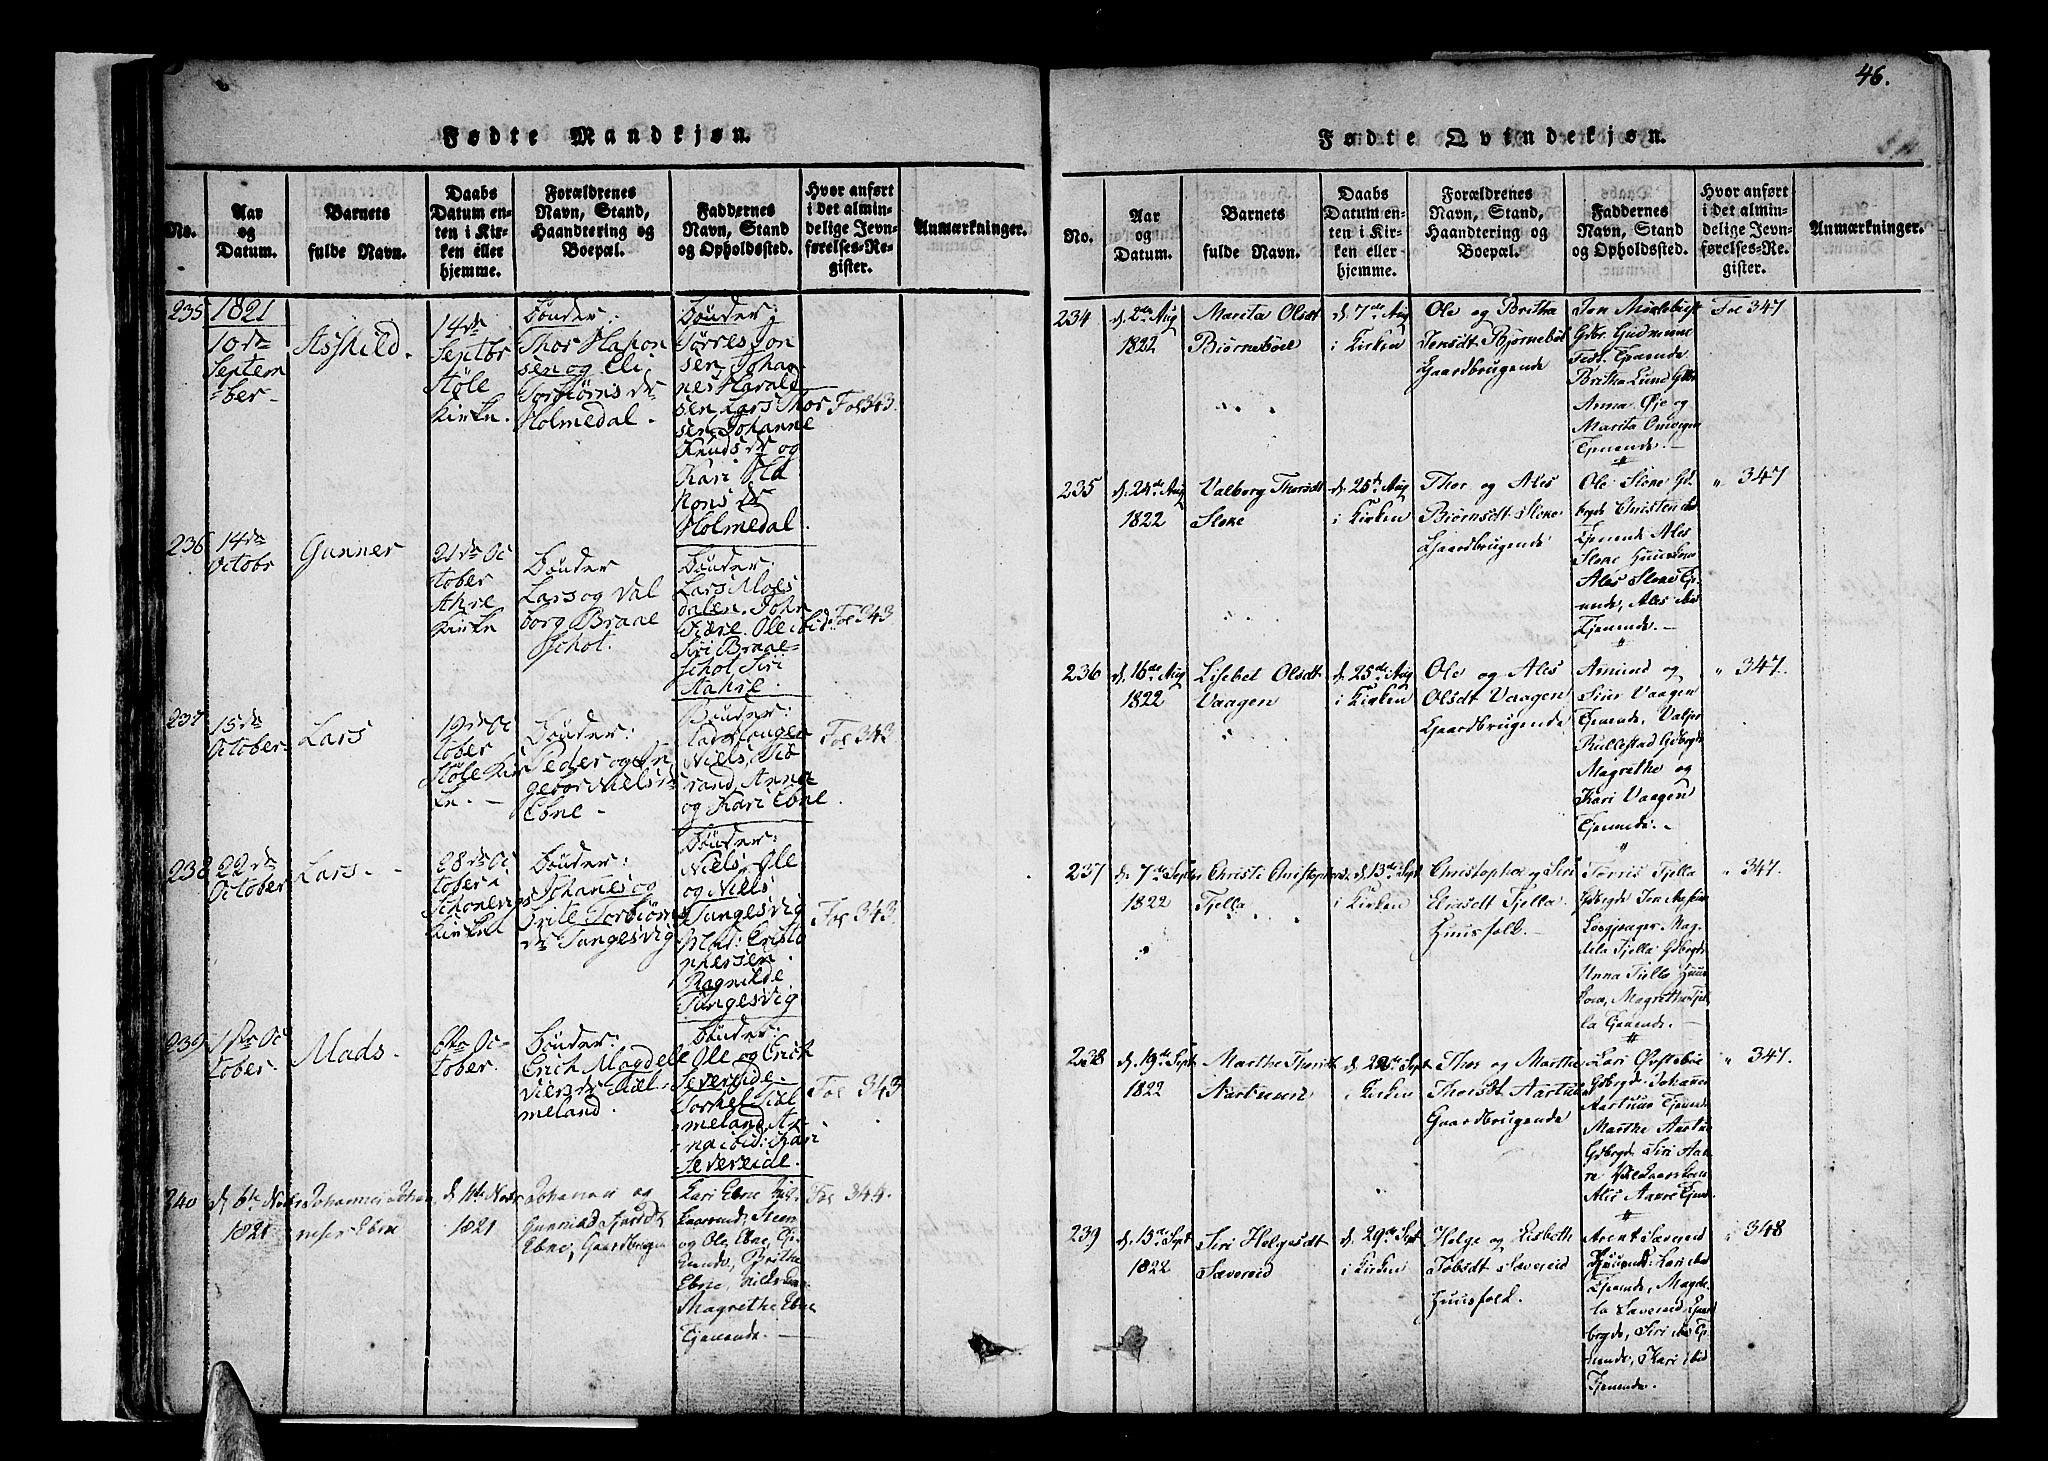 46.
Fødte Mandkjøn.
No.
Aar
og
Datum.
Barnets
fulde Navn.
Daabs
Datum en-
ten i Kir-
ken eller
hjemme.
Forældrenes
Navn, Stand,
Haandtering og
Boepæl.
Faddernes
Navn, Stand
og Opholdssted.
Hvor anført
i det almin-
delige Jevn-
førelses-Re-
gister.
Anmærkninger.
235
1821
10de
Septem
ber
Asskild.
14de
Septbr
Støle
Kirke.
Bønder.
Thor Hakon
sen og Eli
Torbiørns dr
Holmedal.
Bønder:
Tørres Jon
sen, Johan
nes Harald
sen, Lars Thor
sen, Johanne
Knuds dr og
Kari Ha
kons dr
Holmedal
Fol 343.
236
14de
Octobr
Gunner
21de Oc
tober
Ahre
Kirke
Bønder
Lars og Val
borg Braae
schot.
Bønder:
Lars Moes
dalen. John
Ole ibid
Siri Braae-
schot Siri
Aahre.
Fol 343
237
15de
October
Lars
19de Oc
tober
Støle Kir
ke.
Bønder:
Peder og In
gebor Niels dr
Ebne
Bønder:
Niels,
rand, Anna
og Kari Ebne
Fol 343
238
22de
October
Lars.
28de Oc
tober
Schonevigs
Kirke
Bønder:
Johanes og
Torbiørns
dr Tungesvig
Bønder:
Niels, Ole
og Niels
Tungesvig
Cristo
phersen
Ragnilde
Tungesvig
Fol 343
239
1ste Oc
tober
Mads.
6te Oc-
tober.
Bønder:
Erich Magdele
Viers dr Tiel
meland.
Bønder:
Ole og Erich
Severeide
Torkel Tiel
meland, An
na ibid: Kari
Severeide.
Fol 343
240
d. 6te Novbr
1821
Johannes Johan
nesen Ebne
d. 11te Novbr
1821
Johannes og
Ebne, Gaardbrugen
Kari Ebne
og Ole Ebne, Tje
nende, Britha
Ebne, Niels
Magrethe Ebne
Tjenende.
Fol 344.
Fødte Qvindekjøn.
No.
Aar
og
Datum.
Barnets
fulde Navn.
Daabs
Datum en-
ten i Kir-
ken eller
hjemme.
Forældrenes
Navn, Stand,
Haandtering og
Boepæl.
Faddernes
Navn, Stand
og Opholdssted.
Hvor anført
i det almin-
delige Jevn-
førelses-Re-
gister.
Anmærkninger.
234
d. 2den Aug
1822
Marita Olsdt
Biørnebøel
d. 7de Aug
i Kirken
Ole og Britha
Jensdt Bjørnebøl
Gaardbrugende
Jon
Gdbr. Gudmund
Tjenende
Britha Lund Gdbr.
Anna Øie og
Marita Omvigen
Tjenende.
Fol 347
235
d. 24de Aug
1822
Valborg Thorsdt
Sloke
d. 25de Aug
i Kirken
Thor og Ales
Biørnsdt Sloke
Gaardbrugende
Ole Sloke Gd.
brgde Christen ibid
Tjenende Ales
Sloke Huuskone
Ales Sloke Tje
nende, Ales ibid
Tjenende.
" 347
236
d. 16de Aug
1822
Lisebet Olsdt
Vaagen
d. 25de Aug
i Kirken
Ole og Ales
Olsdt Vaagen
Gaardbrugende
Amund og
Siur Vaagen
Tjenende, Valbor
Rullestad Gdbrgde
Magrethe og
Kari Vaagen
Tjenende.
" 347.
237
d. 7de Septbr
1822
Christi Christophersdt
Fjella
d. 13de Sept
i Kirken
Christopher og Siri
Ericsdt Fjella
Huusfolk.
Tørris Fjella
Gdbrgde Jon
Magde
lila Fjella Gdbrgde
Anna Fjella Huus
kone, Magrethe Fjel
la Tjenende.
" 347.
238
d. 19de Sept
1822
Marthe Thorsdt
Aartuun
d. 22de Sept
i Kirken
Thor og Marthe
Thorsdt Aartuun
Gaardbrugende
Lars Østebøe
Gdbrgde Johannes
Aartuun Tjenende
Marthe Aartun
Gdbrgde Siri Aak
re,
Ales Aakre Tjenende
" 347.
239
d. 15de Sept
1822
Siri Helgesdt
Sævereid
d. 29de Sept
i Kirken
Helge og Lisbeth
Jobsdt Sævereid
Huusfolk.
Arent Sævereid
Tjenende. Lars ibid
Tjenende, Magde
la Sævereid Gaard
brgde, Siri ibid Tje
nende, Kari ibid
Tjenende.
" 348